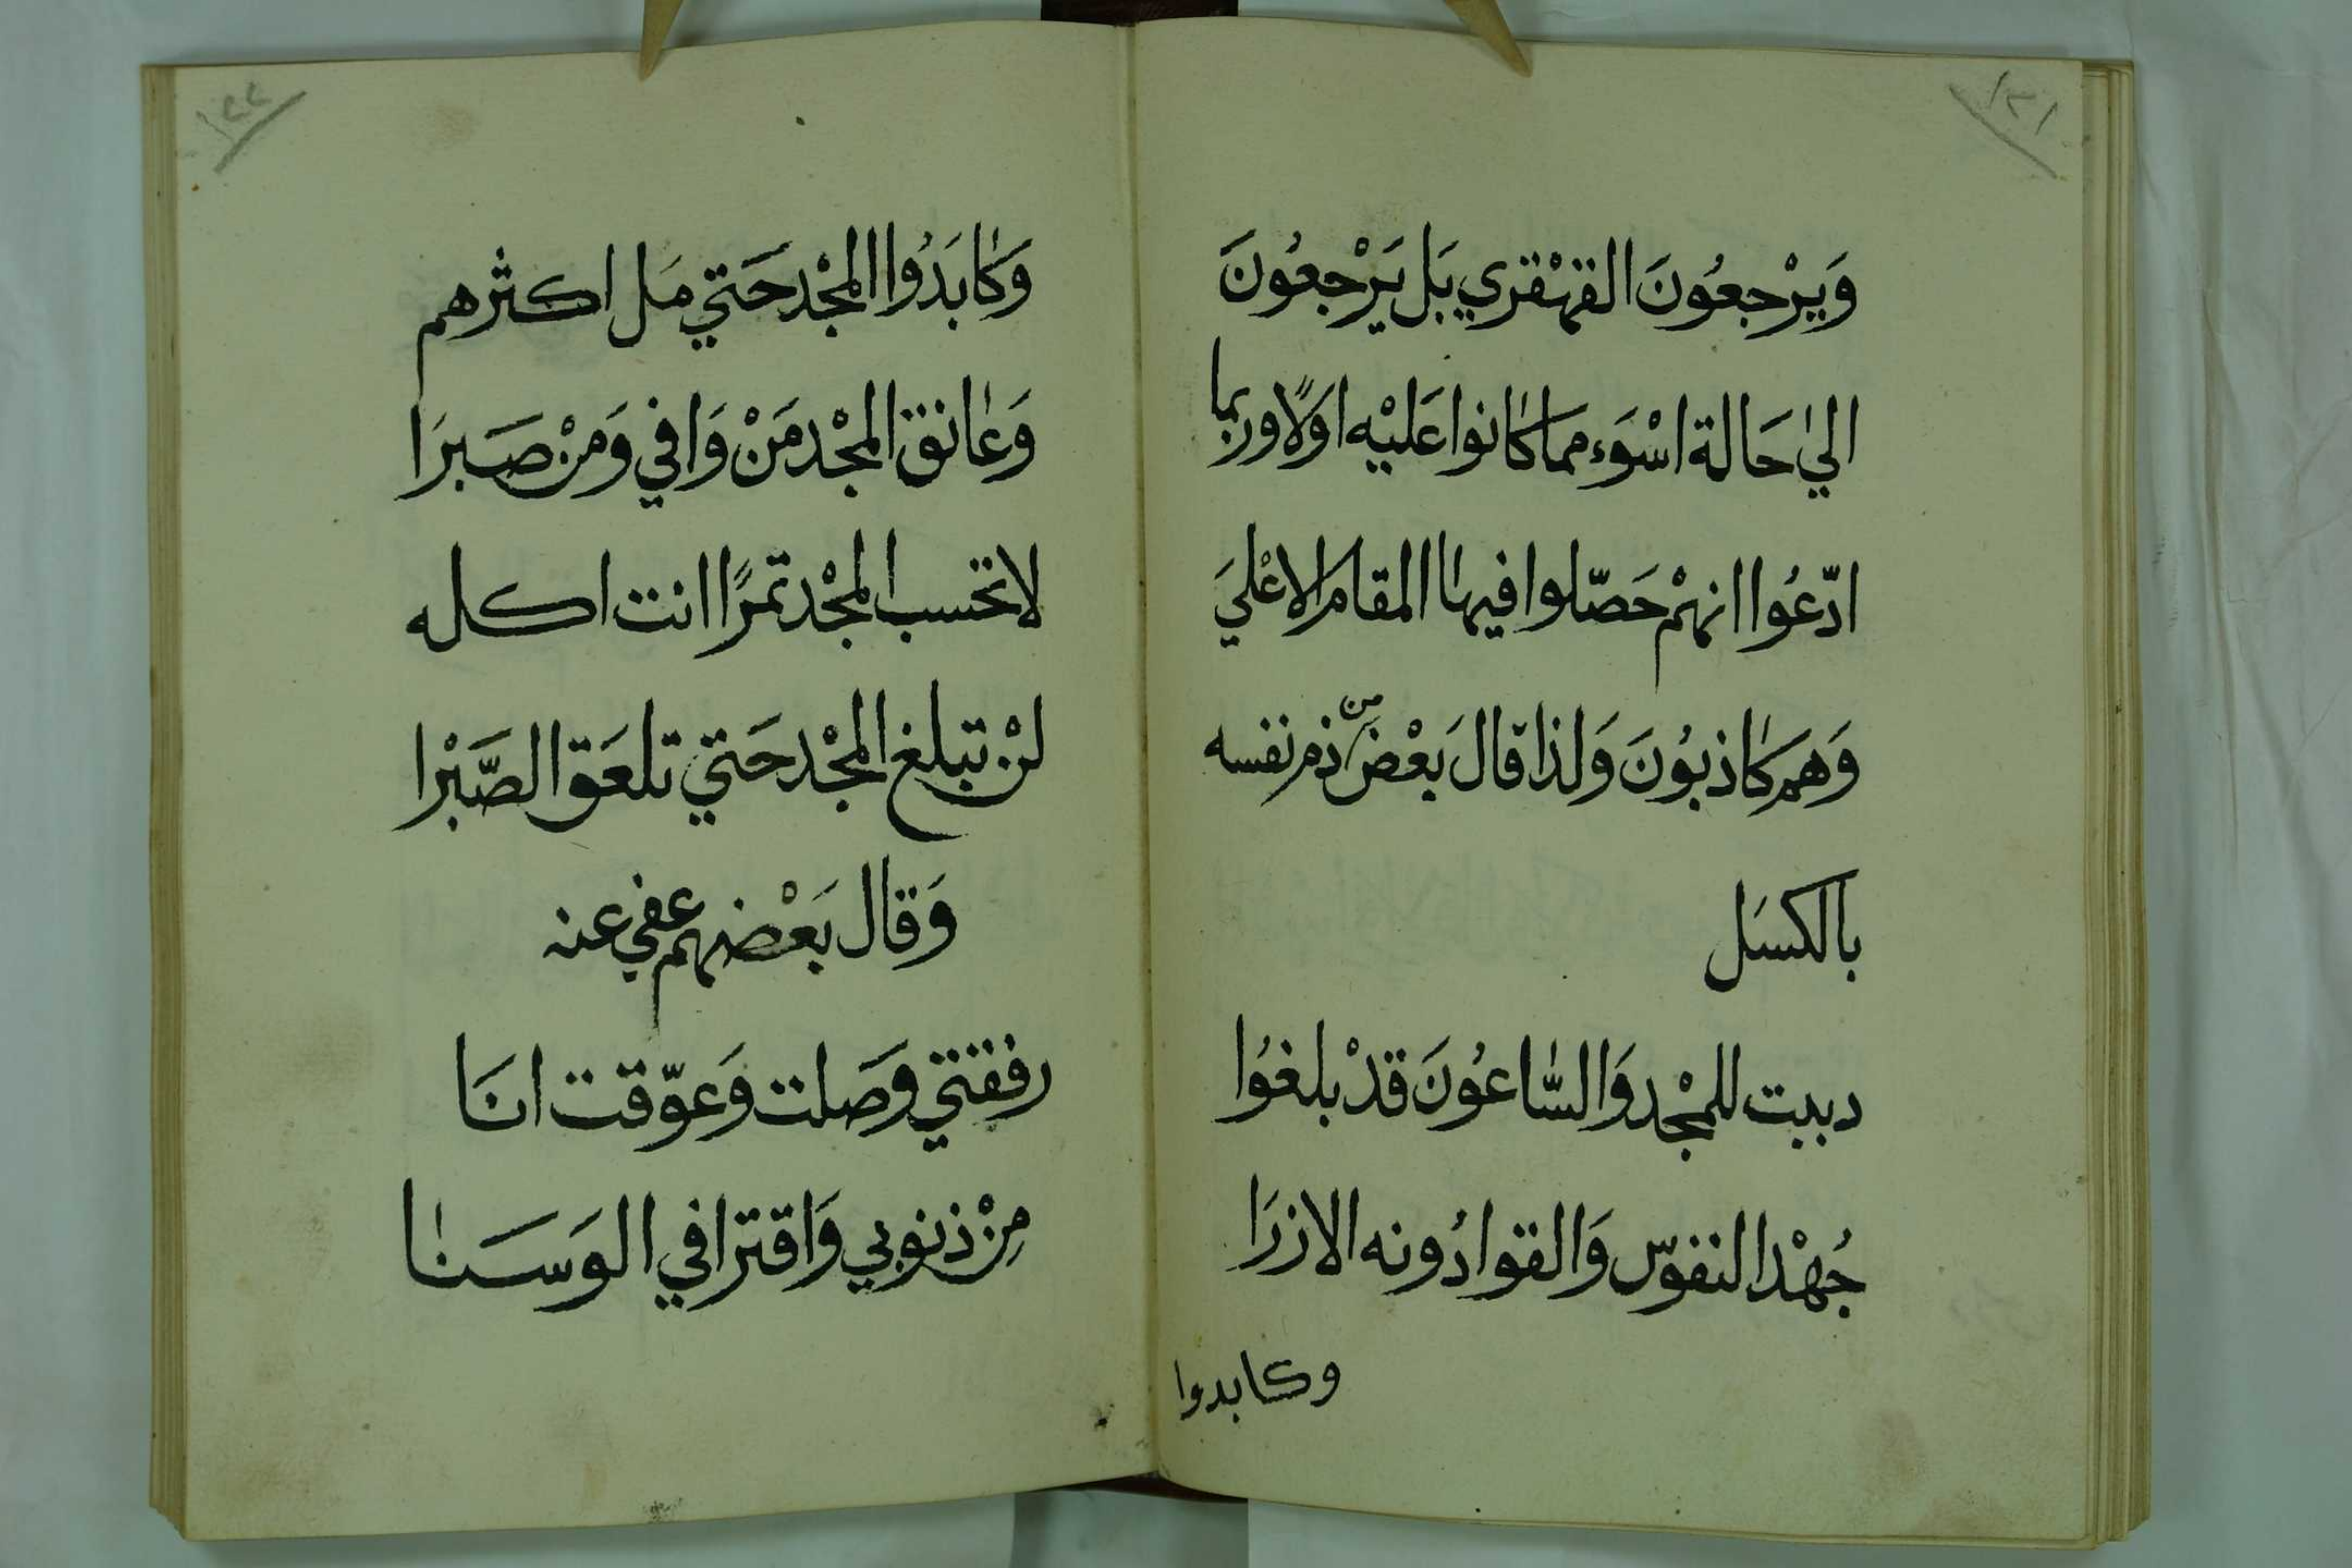 ١٢١
وَيَرْجعُونَ القهْقري بَل يَرْجعُونَ
الي حَالة اسْوَء مما كانوا عَليْه اولًا وربما
ادّعُوا انهمْ حَصّلوا فيها المقام الاعْليَ
وَهم كاذبُونَ وَلذا قال بَعْض من ذم نفسه
بالكسَل
دببت للمجْد وَالسّاعُونَ قدْ بلغُوا
جُهْد النفوس وَالقوا دُونه الازرَا
وكابدوا
١٢٢
وَكابَدُوا المجْد حَتي مَل اكثرهم
وَعانق المجْد مَنْ وَافي وَمنْ صَبرَا
لا تحسب المجْد تمرًا انت اكله
لنْ تبلغ المجْد حَتي تلعَق الصَّبْرا
وَقال بَعْضهم عفي عنه
رفقتي وصَلت وَعوّقت انَا
مِنْ ذنوبي وَاقترافي الوَسَنا